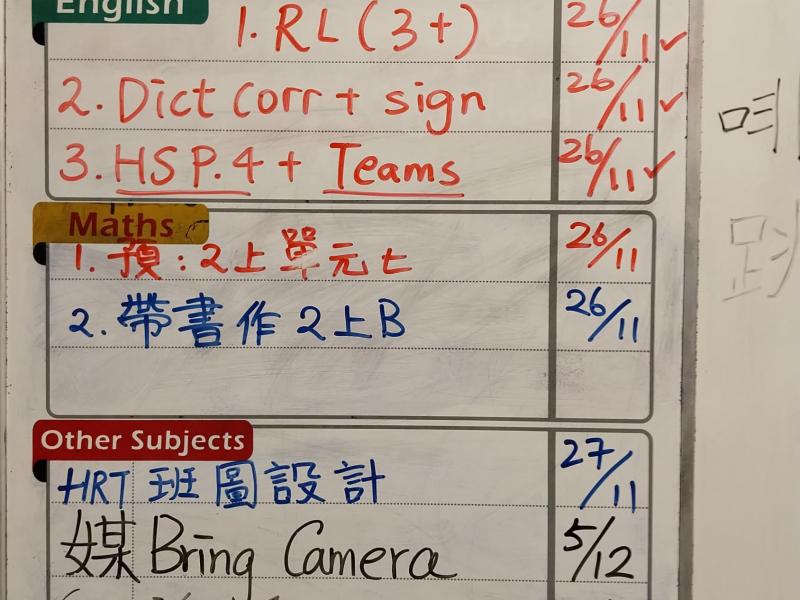 English
1. RL (3+) 26/11 ✓
2. Dict Corr + sign 26/11 ✓
3. HSP.4 + Teams 26/11 ✓
Maths
1. 預:2上單元七 26/11
2. 帶書作2上B 26/11
Other Subjects
HRT 班圖設計 27/11
媒 Bring Camera 5/12